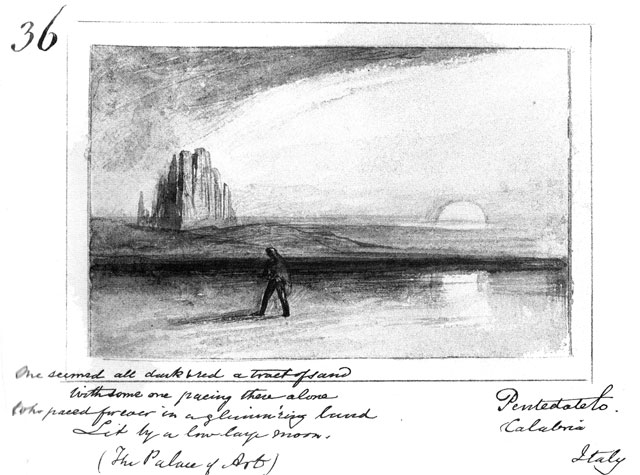 36
One seemed all dark & red a tract of sand
With some one pacing there alone
Who paced forever in a glimm'ring land
Lit by a low large moon.
(The Palace of Art)
Pentedatelo.
Calabria
Italy